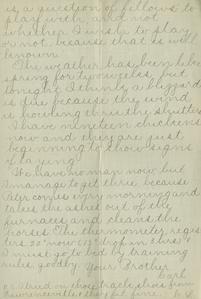 is a question of fellows to
play with, and not
whether I wish to play
or not, because that is well
known.
The weather has been like
spring for two weeks, but
tonight I think a blizzard
is due because the wind
is howling thru the shutters.
I have nineteen chickens
now and they are just
beginning to show signs
of laying.
We have no man now but
I manage to get thru because
Pete comes every morning and
takes the ashes out of the
furnaces and cleans the
horses. The thermometer regis-
ters 30° now (13° drop in 3 hrs.)
I must go to bed by training
rules, goodby. Your Brother
Carl
I tried on those track shoes from